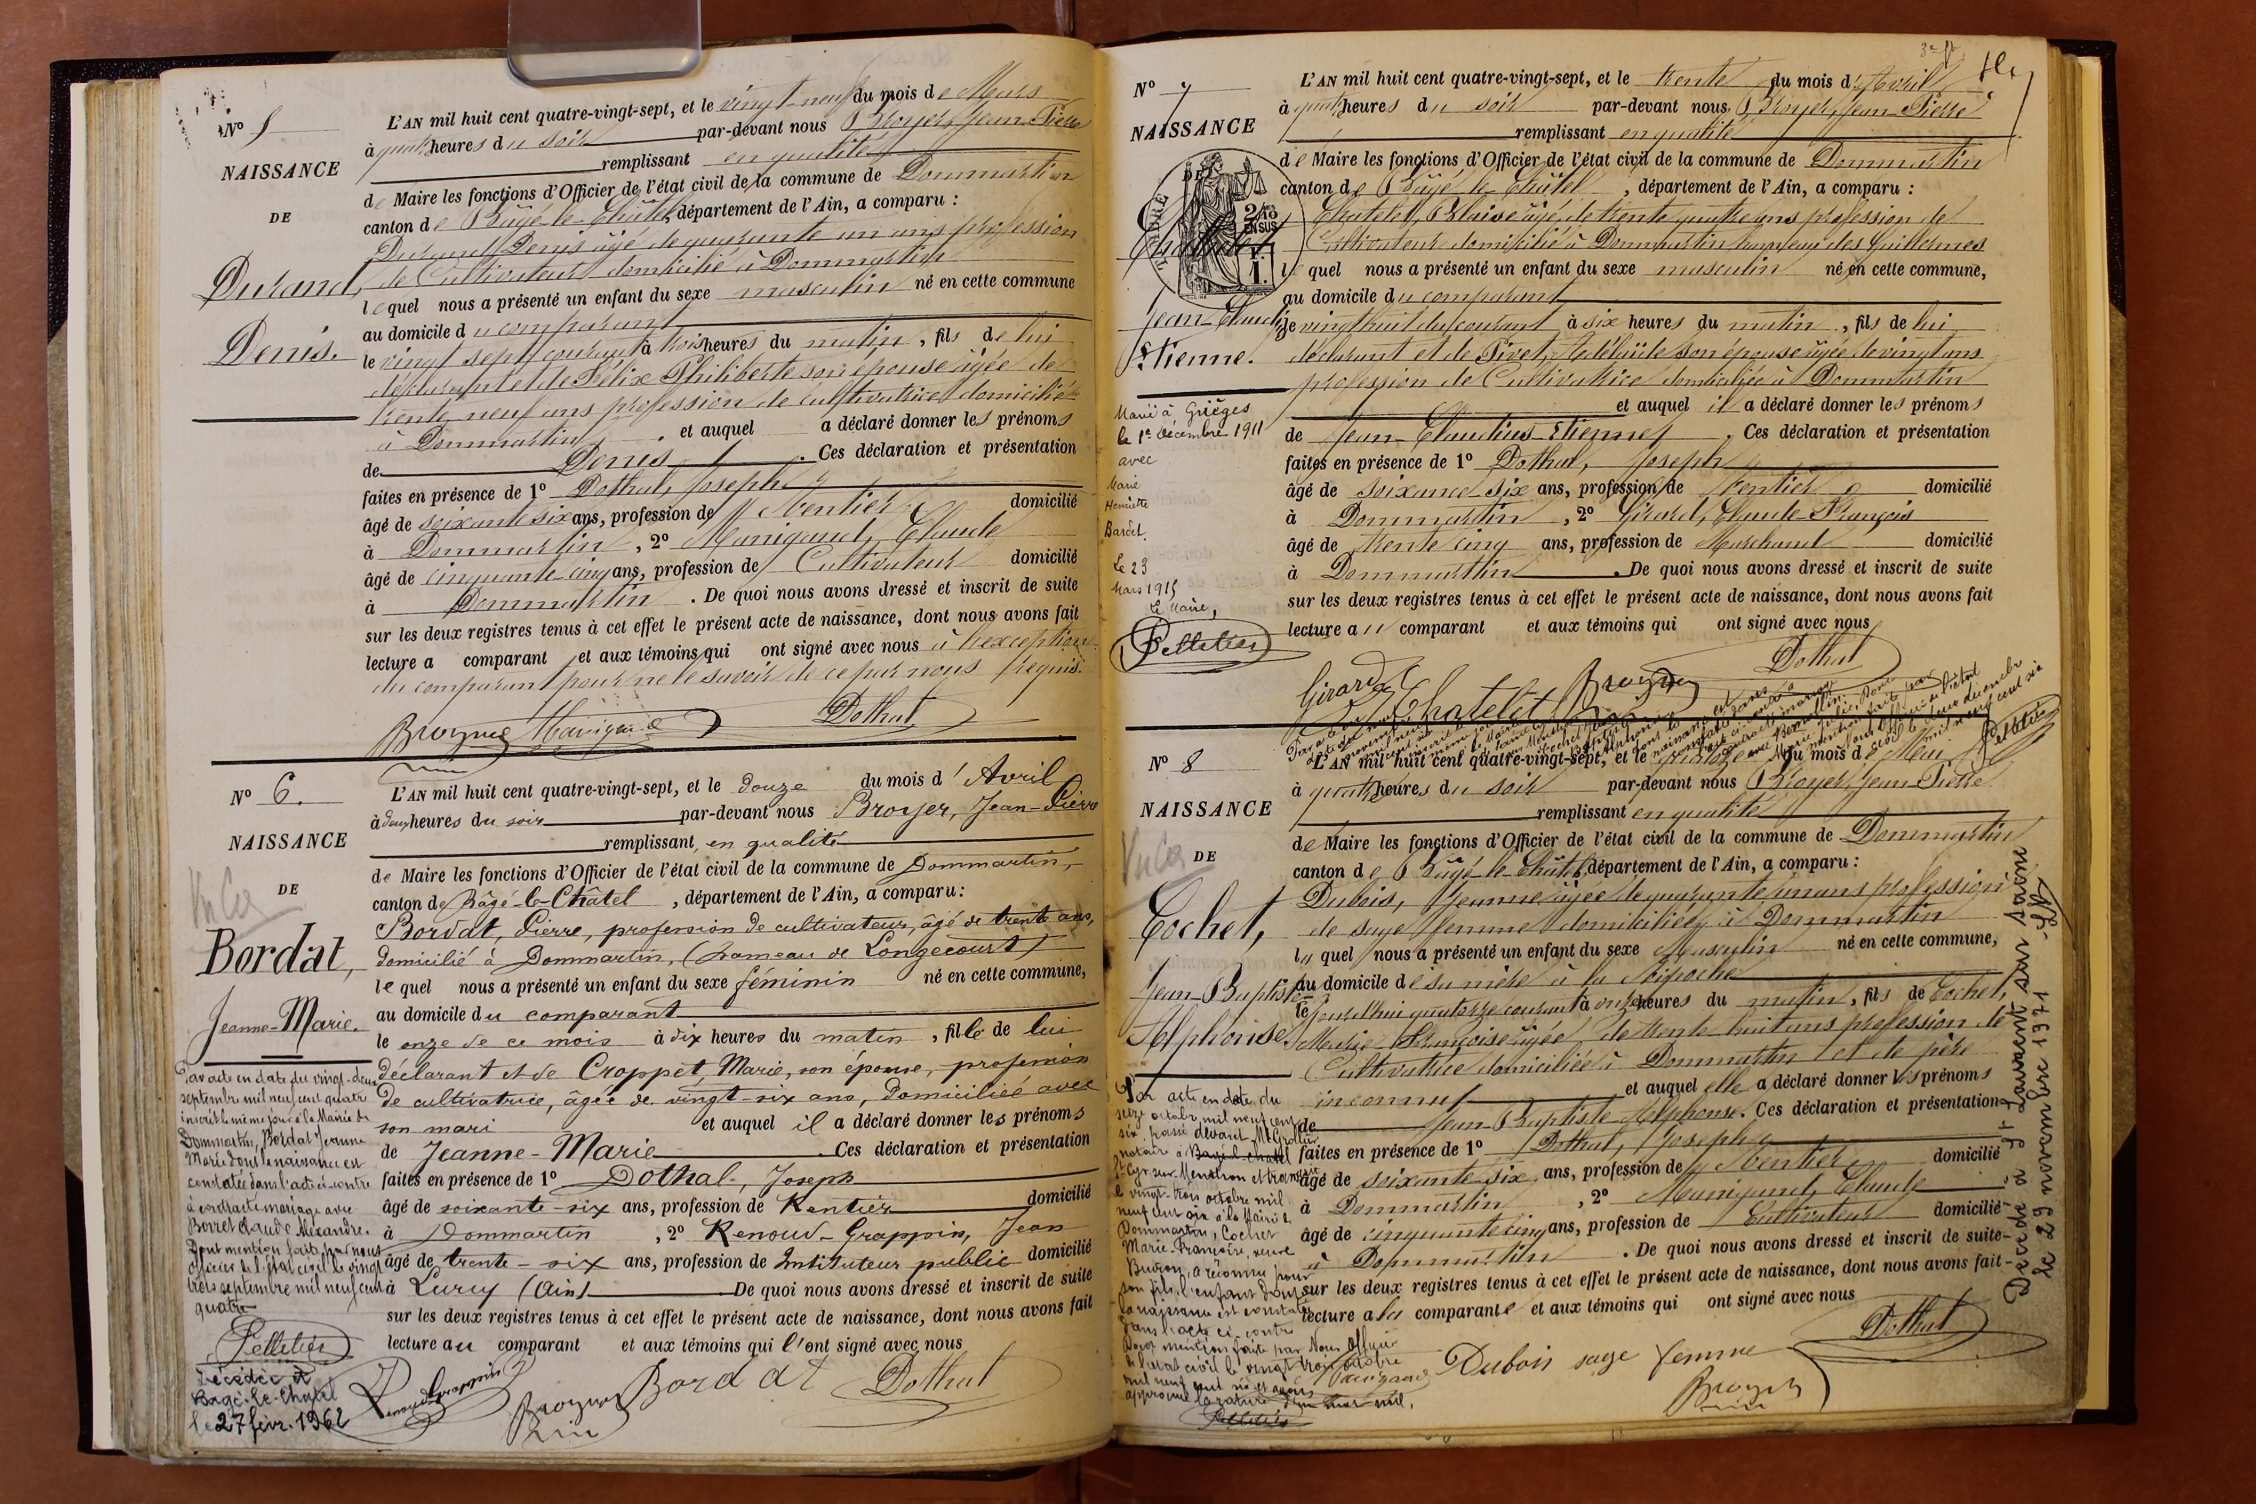 Nº 5
NAISSANCE
DE
Durand,
Denis.
L'AN mil huit cent quatre-vingt-sept, et le vingt-neuf du mois de Mars
à quatre heures du soir par-devant nous Broyer, Jean-Pierre
remplissant en qualité
de Maire les fonctions d'Officier de l'état civil de la commune de Dommartin
canton de Bâgé-le-Châtel, département de l'Ain, a comparu :
Durand Denis âgé de quarante un ans profession
de Cultivateur domicilié à Dommartin
lequel nous a présenté un enfant du sexe masculin né en cette commune
au domicile du comparant
le vingt sept courant à trois heures du matin, fils de lui
déclarant et de Félix Philiberte son épouse âgée de
trente neuf ans profession de cultivatrice domiciliée
à Dommartin, et auquel a déclaré donner les prénoms
de Denis. Ces déclaration et présentation
faites en présence de 1º Dothal, Joseph
âgé de soixante six ans, profession de Rentier domicilié
à Dommartin, 2º Manigand, Claude
âgé de cinquante cinq ans, profession de Cultivateur domicilié
à Dommartin. De quoi nous avons dressé et inscrit de suite
sur les deux registres tenus à cet effet le présent acte de naissance, dont nous avons fait
lecture a comparant et aux témoins qui ont signé avec nous à l'exception
du comparant pour ne le savoir de ce par nous requis.
Broyer Manigand Dothal
Nº 6.
NAISSANCE
DE
Bordat,
Jeanne-Marie.
L'AN mil huit cent quatre-vingt-sept, et le douze du mois d'Avril
à deux heures du soir par-devant nous Broyer, Jean-Pierre
remplissant en qualité
de Maire les fonctions d'Officier de l'état civil de la commune de Dommartin,
canton de Bâgé-le-Châtel, département de l'Ain, a comparu :
Bordat, Pierre, profession de cultivateur, âgé de trente ans,
domicilié à Dommartin, (hameau de Longecourt)
lequel nous a présenté un enfant du sexe féminin né en cette commune,
au domicile du comparant
le onze de ce mois à dix heures du matin, fille de lui
déclarant et de Croppet, Marie, son épouse, profession
de cultivatrice, âgée de vingt-six ans, domiciliée avec
son mari et auquel il a déclaré donner les prénoms
de Jeanne-Marie. Ces déclaration et présentation
faites en présence de 1º Dothal, Joseph
âgé de soixante-six ans, profession de Rentier domicilié
à Dommartin, 2º Renoud-Grappin, Jean
âgé de trente-six ans, profession de Instituteur public domicilié
à Lurcy (Ain). De quoi nous avons dressé et inscrit de suite
sur les deux registres tenus à cet effet le présent acte de naissance, dont nous avons fait
lecture au comparant et aux témoins qui l'ont signé avec nous
Renoud Grappin Broyer Bordat Dothal
Par acte en date du vingt-deux
septembre mil neuf cent quatre
inscrit le même jour à la Mairie de
Dommartin, Bordat Jeanne
Marie dont la naissance est
constatée dans l'acte ci-contre
a contracté mariage avec
Borret Claude Alexandre.
Dont mention faite par nous
officier de l'état civil le vingt
trois septembre mil neuf cent
quatre
Pelletier
Décédée à
Bâgé-le-Châtel
le 27 févr. 1962
Nº 7
NAISSANCE
DE
Chatelet
Jean-Claudius
Etienne.
TIMBRE
2/10 EN SUS
L'AN mil huit cent quatre-vingt-sept, et le trente du mois d'Avril
à quatre heures du soir par-devant nous, Broyer, Jean-Pierre
remplissant en qualité
de Maire les fonctions d'Officier de l'état civil de la commune de Dommartin
canton de Bâgé-le-Châtel, département de l'Ain, a comparu :
Chatelet, Blaise âgé de trente quatre ans profession de
Cultivateur domicilié à Dommartin hameau des Guillermes
lequel nous a présenté un enfant du sexe masculin né en cette commune,
au domicile du comparant
le vingt huit du courant à six heures du matin, fils de lui
déclarant et de Pivet, Adélaïde son épouse âgée de vingt ans
profession de Cultivatrice domiciliée à Dommartin
et auquel il a déclaré donner les prénoms
de Jean-Claudius-Etienne. Ces déclaration et présentation
faites en présence de 1º Dothal, Joseph
âgé de soixante six ans, profession de Rentier domicilié
à Dommartin, 2º Girard, Claude-François
âgé de trente cinq ans, profession de Marchand domicilié
à Dommartin. De quoi nous avons dressé et inscrit de suite
sur les deux registres tenus à cet effet le présent acte de naissance, dont nous avons fait
lecture au comparant et aux témoins qui ont signé avec nous
Girard Chatelet Broyer Dothal
Marié à Grièges
le 1er décembre 1911
avec
Marie
Henriette
Bardet.
Le 23
Mars 1915
Le Maire,
Pelletier
Nº 8
NAISSANCE
DE
Cochet,
Jean-Baptiste-
Alphonse.
L'AN mil huit cent quatre-vingt-sept, et le quatorze du mois de Mai
à quatre heures du soir par-devant nous Broyer, Jean-Pierre
remplissant en qualité
de Maire les fonctions d'Officier de l'état civil de la commune de Dommartin
canton de Bâgé-le-Châtel, département de l'Ain, a comparu :
Dubois, Jeanne âgée de quarante un ans profession
de sage femme domiciliée à Dommartin
laquelle nous a présenté un enfant du sexe Masculin né en cette commune,
au domicile de sa mère à la
le jourd'hui quatorze courant à onze heures du matin, fils de Cochet,
Marie Françoise âgée de trente huit ans profession de
Cultivatrice domiciliée à Dommartin et de père
inconnu et auquel elle a déclaré donner les prénoms
de Jean Baptiste Alphonse. Ces déclaration et présentation
faites en présence de 1º Dothal, Joseph
âgé de soixante six ans, profession de Rentier domicilié
à Dommartin, 2º Manigand, Claude
âgé de cinquante cinq ans, profession de Cultivateur domicilié
à Dommartin. De quoi nous avons dressé et inscrit de suite
sur les deux registres tenus à cet effet le présent acte de naissance, dont nous avons fait
lecture à la comparante et aux témoins qui ont signé avec nous
Manigand Dubois sage femme Dothal
Broyer
Par acte en date du
seize octobre mil neuf cent
six, passé devant Me
notaire à Bagé-le-Châtel
St Cyr sur Menthon et transcrit
le vingt-trois octobre mil
neuf cent six à la Mairie de
Dommartin, Cochet
Marie-Françoise, veuve
Buiron, a reconnu pour
son fils, l'enfant dont
la naissance est constatée
dans l'acte ci-contre
Dont mention faite par Nous Officier
de l'état civil le vingt trois octobre
mil neuf cent six et avons
approuvé la rature d'un mot nul.
Pelletier
Décédé à St Laurent sur Saône
le 29 novembre 1971